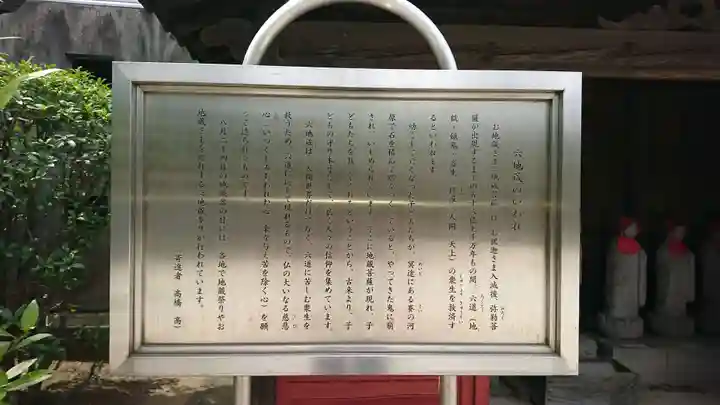 六地蔵のいわれ
お地蔵さま（地蔵菩薩）は、お釈迦さま入滅後、弥勒菩
薩が出現するまでの五十六億七千万年もの間、六道（地
獄・餓鬼・畜生・修羅・人間・天上）の衆生を救済す
るといわれます。
幼くして亡くなった子どもたちが、冥途にある賽の河
原で石を積んで
いると、やってきた鬼に崩
され、いじめられています。そこに地蔵菩薩が現れ、子
どもたちを
ということから、古来より、子
どもの守り本尊として、広く人々の信仰を集めています。
六地蔵は、人間世界だけでなく、六道に苦しむ衆生を
救うため、六道に
して現れるもので、仏の大いなる慈悲
心（いつくしみあわれむ心、楽を与え苦を除く心）を願
って造られたものです。
八月二十四日の地蔵
の日には、各地で地蔵祭りやお
地蔵さまを供養する
地蔵まつりが行われています。
寄進者　高橋　高